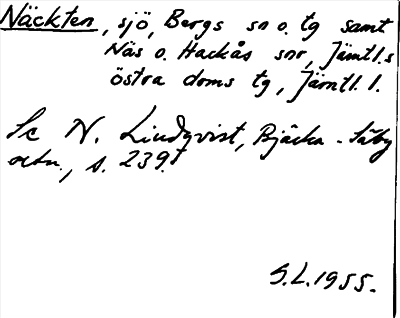 Näckten, sjö, Bergs sn o. tg samt
Näs o. Hackås snr, Jämtl:s
östra doms tg, Jämtl. l.
Se N. Lindqvist, Bjärka-Säby
ortn., s. 239.
S.L. 1955.